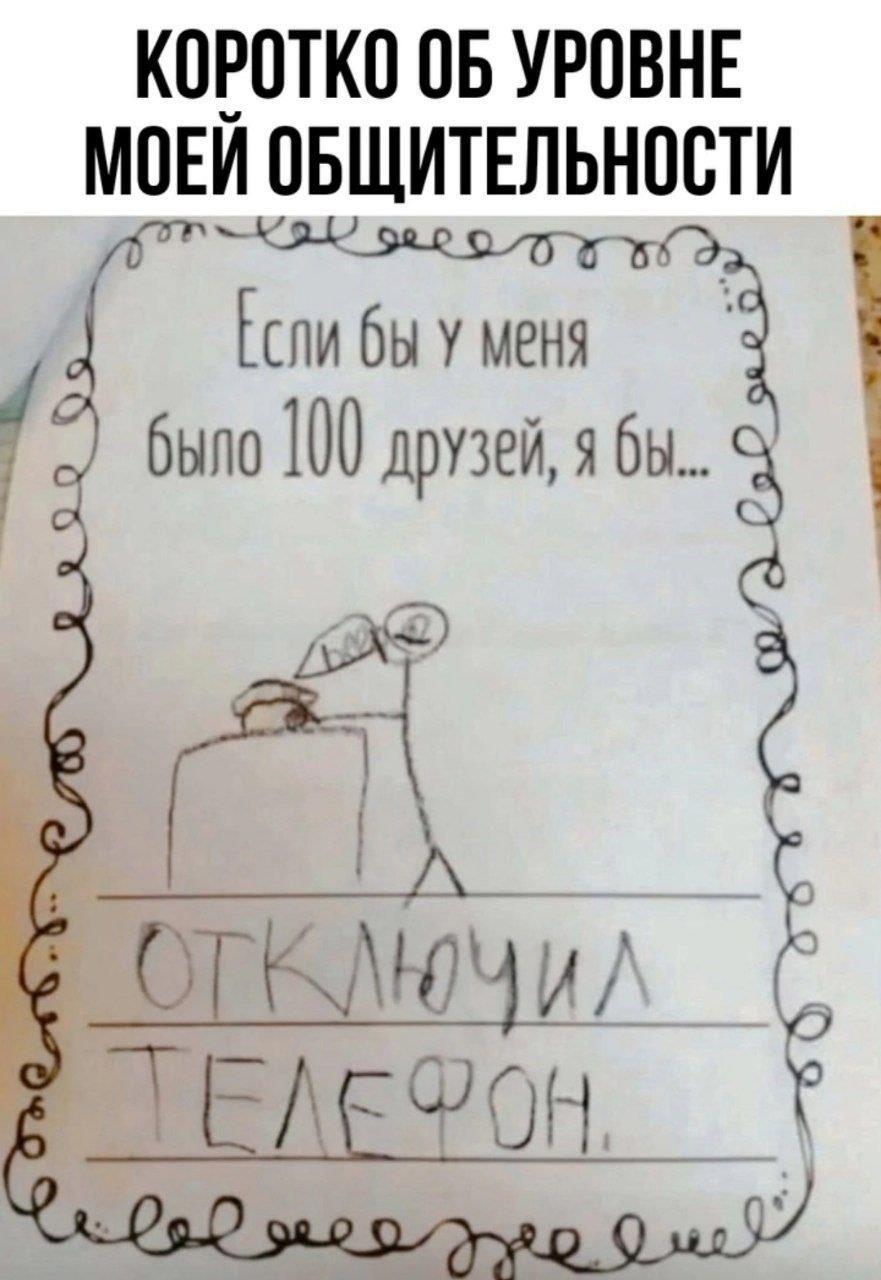 КОРОТКО ОБ УРОВНЕ
МОЕЙ ОБЩИТЕЛЬНОСТИ
Если бы у меня
было 100 друзей, я бы...
ОТКЛЮЧИЛ
ТЕЛЕФОН.